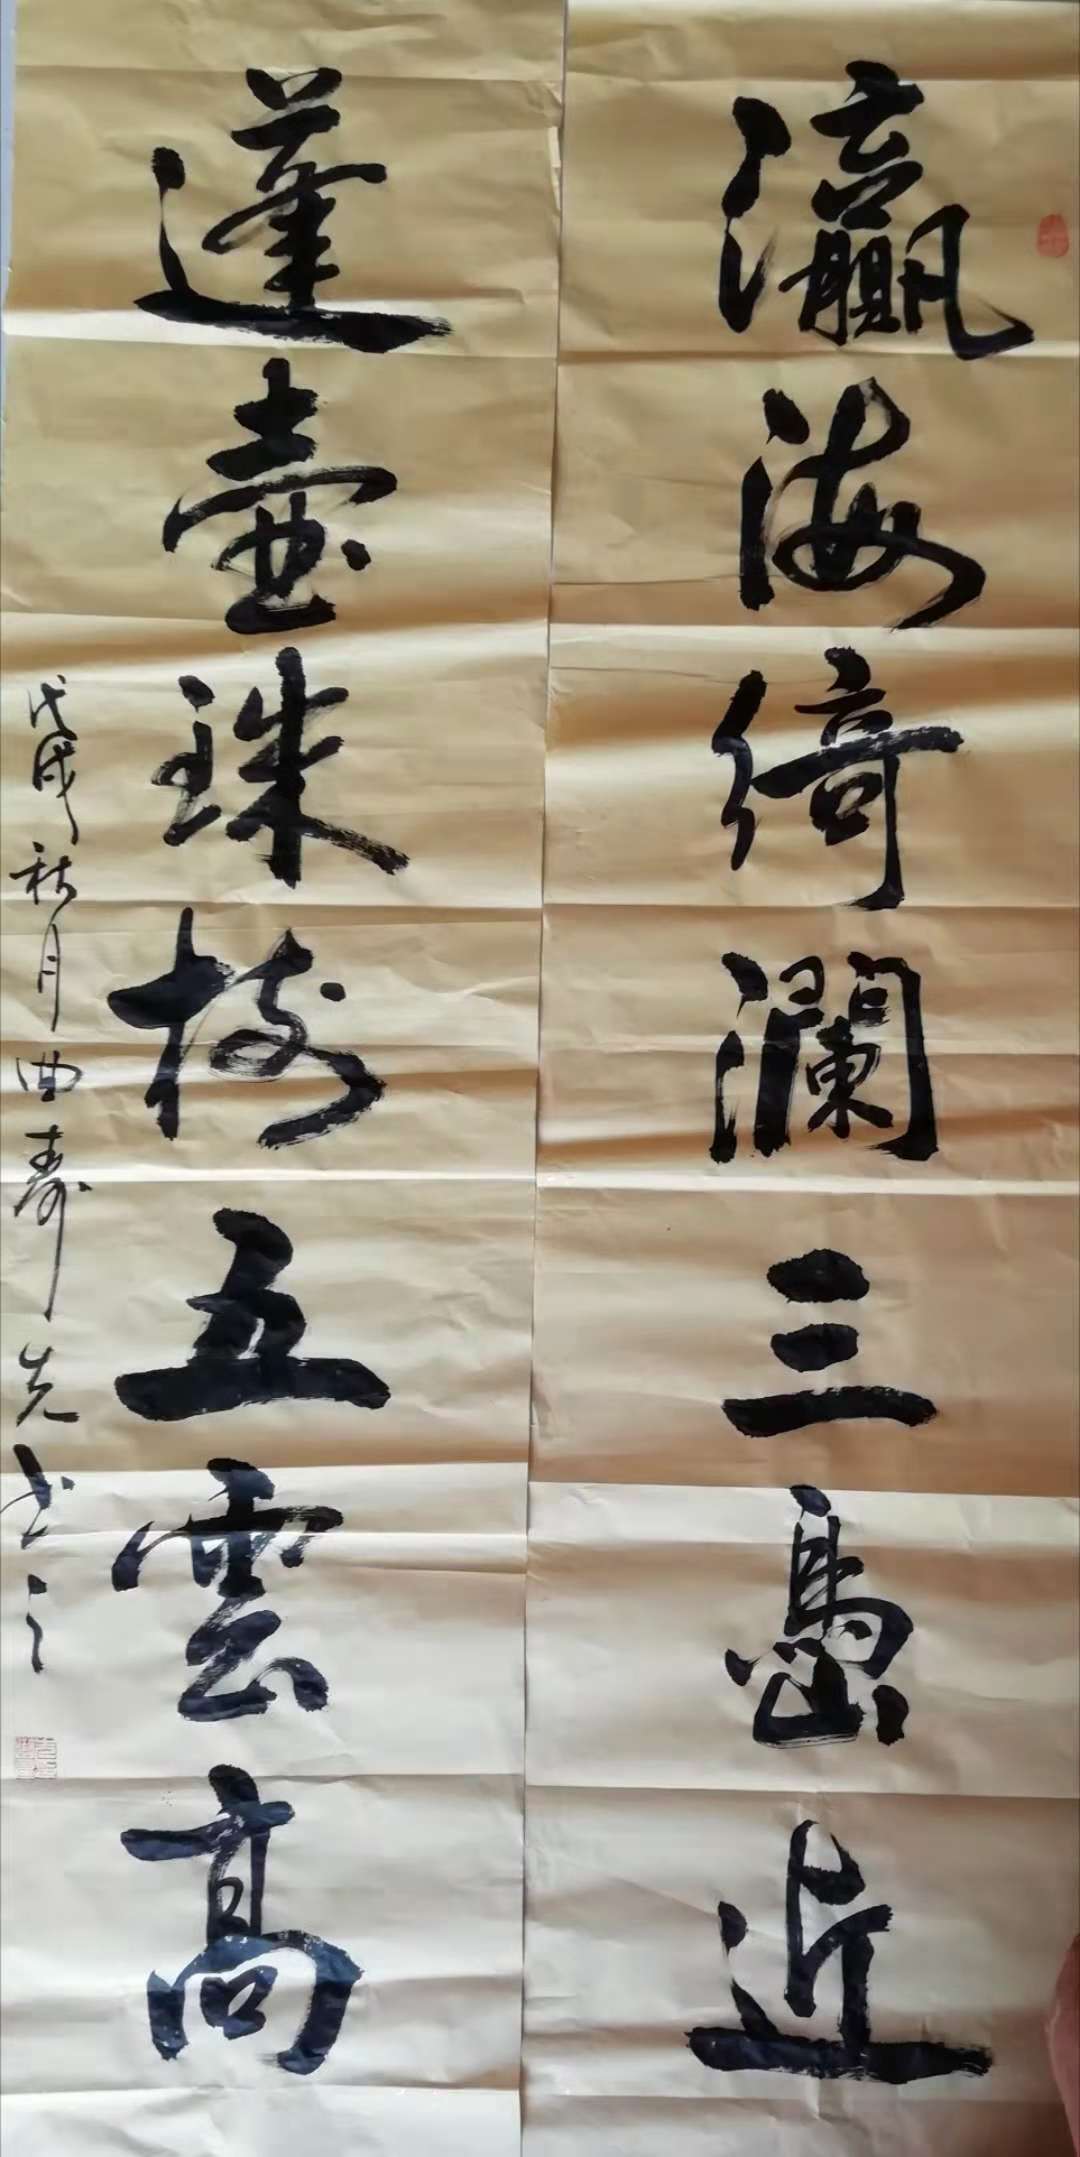 瀛海綺瀾三島近
蓬壺珠樹五雲高
戊戌秋月曲寿先书之